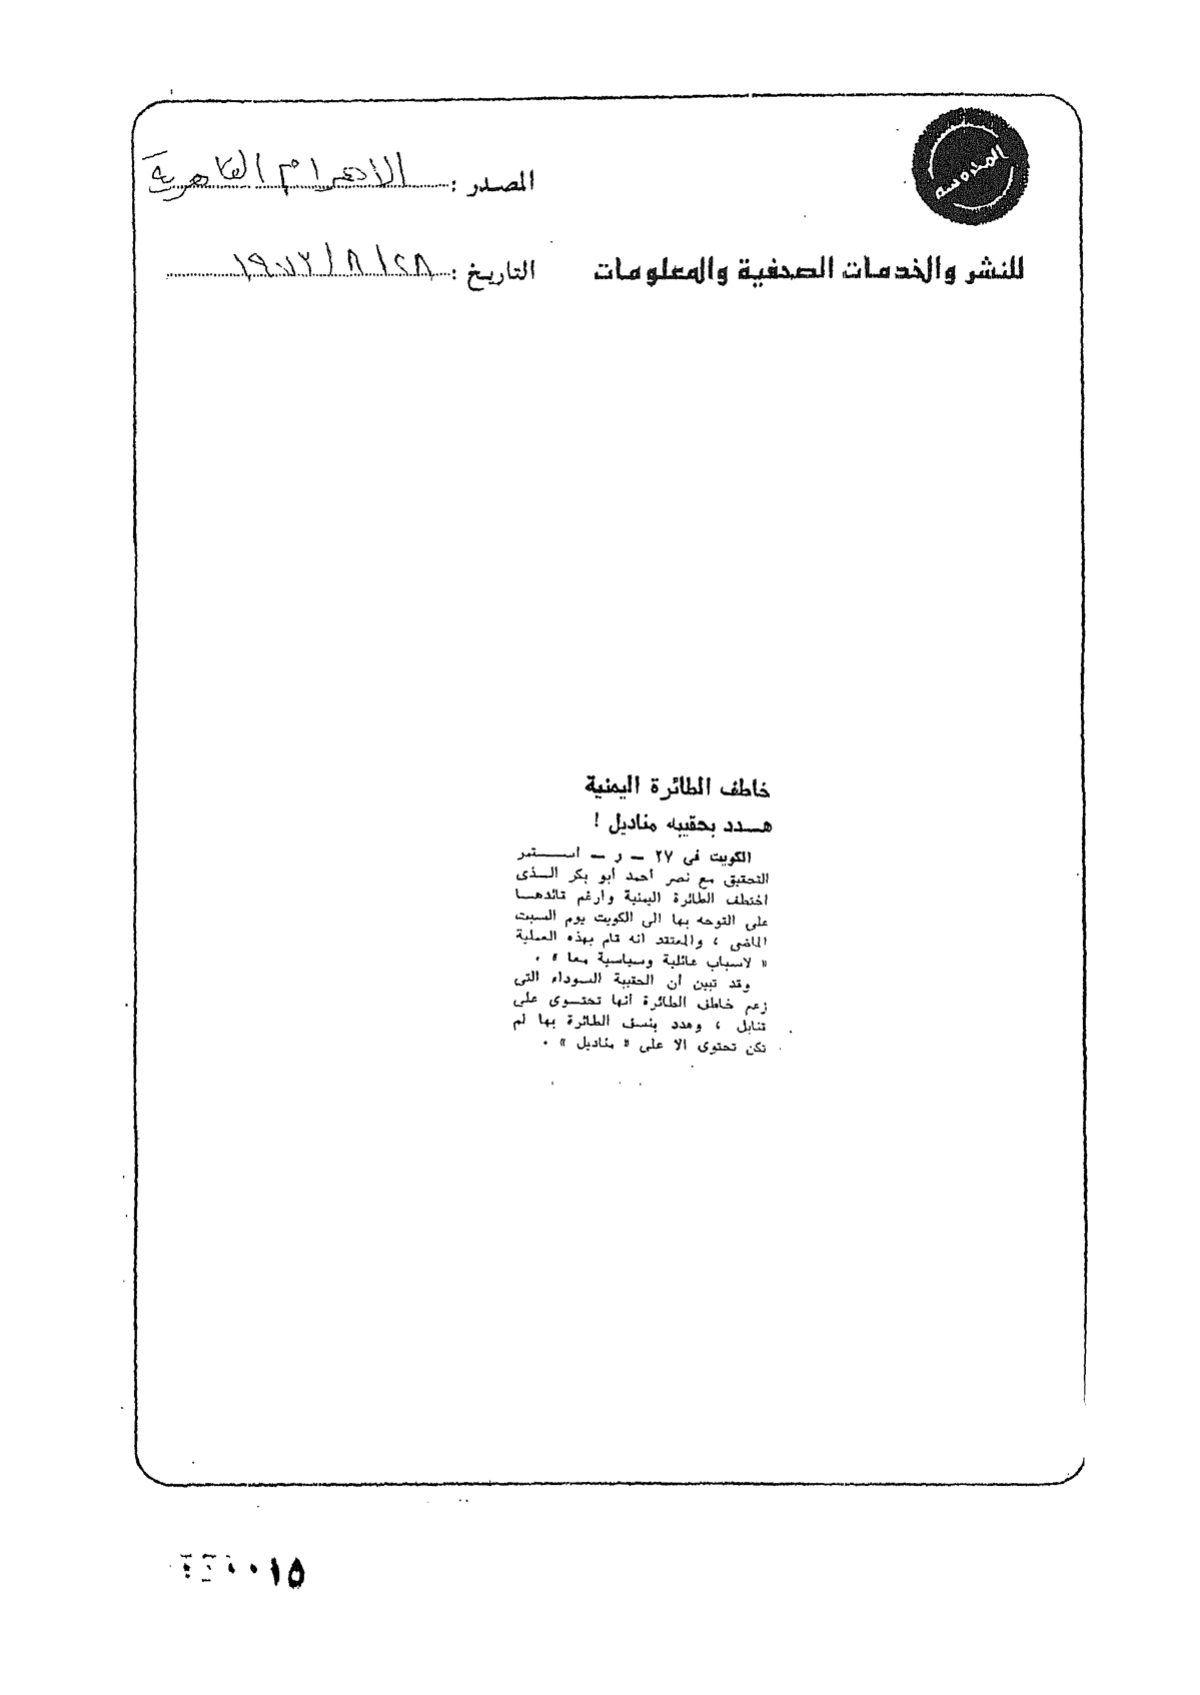 المصدر : الأهرام القاهرية
للنشر والخدمات الصحفية والمعلومات
التاريخ : ٢٨ / ٨ / ١٩٧٣
خاطف الطائرة اليمنية
هـــدد بحقيبه مناديل !
الكويت فى ٢٧ — ر — اســـتمر
التحقيق مع نصر احمد أبو بكر الـذى
اختطف الطائرة اليمنية وارغم قائدهـا
على التوجه بها الى الكويت يوم السبت
الماضى ، والمعتقد انه قام بهذه العملية
« لاسباب عائلية وسياسية معا » .
وقد تبين أن الحقيبة السوداء التى
زعم خاطف الطائرة انها تحتـوى على
قنابل ، وهدد بنسف الطائرة بها لم
تكن تحتوى الا على « مناديل » .
٠٠١٥